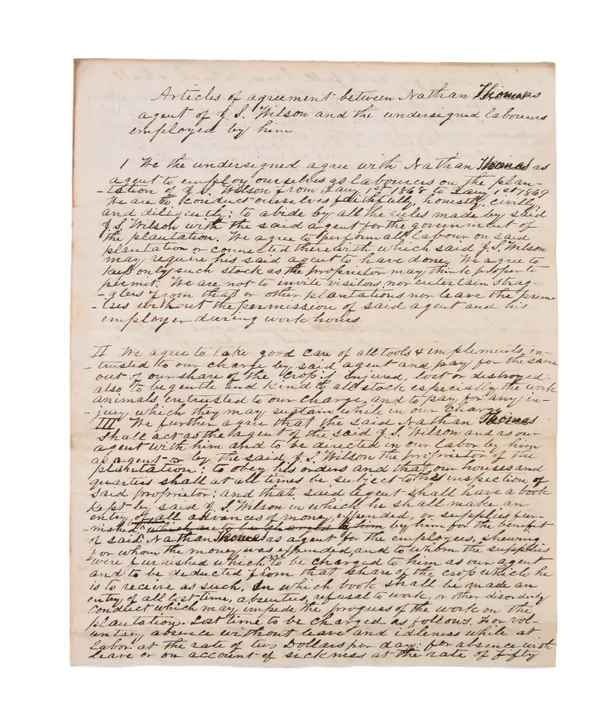 Articles of agreement between Nathan Thomas as
agent of J. S. Wilson and the undersigned labourers
employed by him
I We the undersigned agree with Nathan Thomas as
agent to employ ourselves as labourers on the plan-
-tation of J. S. Wilson from Jany 1st 1868 to Jany 1st 1869
We are to conduct ourselves faithfully, honestly, civilly
and diligently; to abide by all the rules made by said
J. S. Wilson with the said agent for the government of
the plantation. We agree to perform all labour on said
plantation or connected therewith which said J. S. Wilson
may require his said agent to have done. We agree to
keep only such stock as the proprietor may think proper to
permit. We are not to invite visitors nor entertain strag-
-glers from that or other plantations nor leave the prem-
-ises without the permission of said agent and his
employer during work hours
II We agree to take good care of all tools & implements, in-
-trusted to our charge by said agent and pay for the same
out of our share of the crop if injured, lost or destroyed:
also to be gentle and kind to all stock especially the work
animals intrusted to our charge, and to pay for any in-
-jury which they may sustain while in our charge
III We further agree that the said Nathan Thomas
shall act as the agent of the said J. S. Wilson and as our
agent with him and to be directed in our labor by him
as agent or by the said J. S. Wilson the proprietor of the
plantation: to obey his orders and that our houses and
quarters shall at all times be subject to the inspection of
said proprietor: and that said agent shall have a book
kept by said J. S. Wilson in which he shall make an
entry of all advances of money, expended, or supplies fur-
-nished by him for the benefit
of said Nathan Thomas as agent for the employees, shewing
for whom the money was expended, and to whom the supplies
were furnished which to be charged to him as our agent
and to be deducted from that share of the crop which he
is to receive as such. In which book shall be made an
entry of all lost time, absentees, refusal to work, or other disorderly
conduct which may impede the progress of the work on the
plantation. Lost time to be charged as follows. For vol-
untary absence without leave and idleness while at
labor at the rate of two Dollars per day: for absence with
leave or on account of sickness at the rate of Fifty